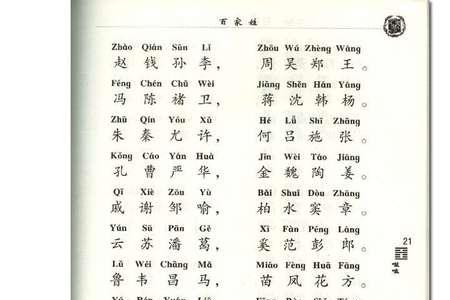 百家姓
Zhào Qián Sūn Lǐ Zhōu Wú Zhèng Wáng
赵钱孙李，周吴郑王。
Féng Chén Chǔ Wèi Jiǎng Shěn Hán Yáng
冯陈褚卫，蒋沈韩杨。
Zhū Qín Yóu Xǔ Hé Lǚ Shī Zhāng
朱秦尤许，何吕施张。
Kǒng Cáo Yán Huà Jīn Wèi Táo Jiāng
孔曹严华，金魏陶姜。
Qī Xiè Zōu Yù Bǎi Shuǐ Dòu Zhāng
戚谢邹喻，柏水窦章。
Yún Sū Pān Gě Xī Fàn Péng Láng
云苏潘葛，奚范彭郎。
21
Lǔ Wéi Chāng Mǎ Miáo Fèng Huā Fāng
鲁韦昌马，苗凤花方。